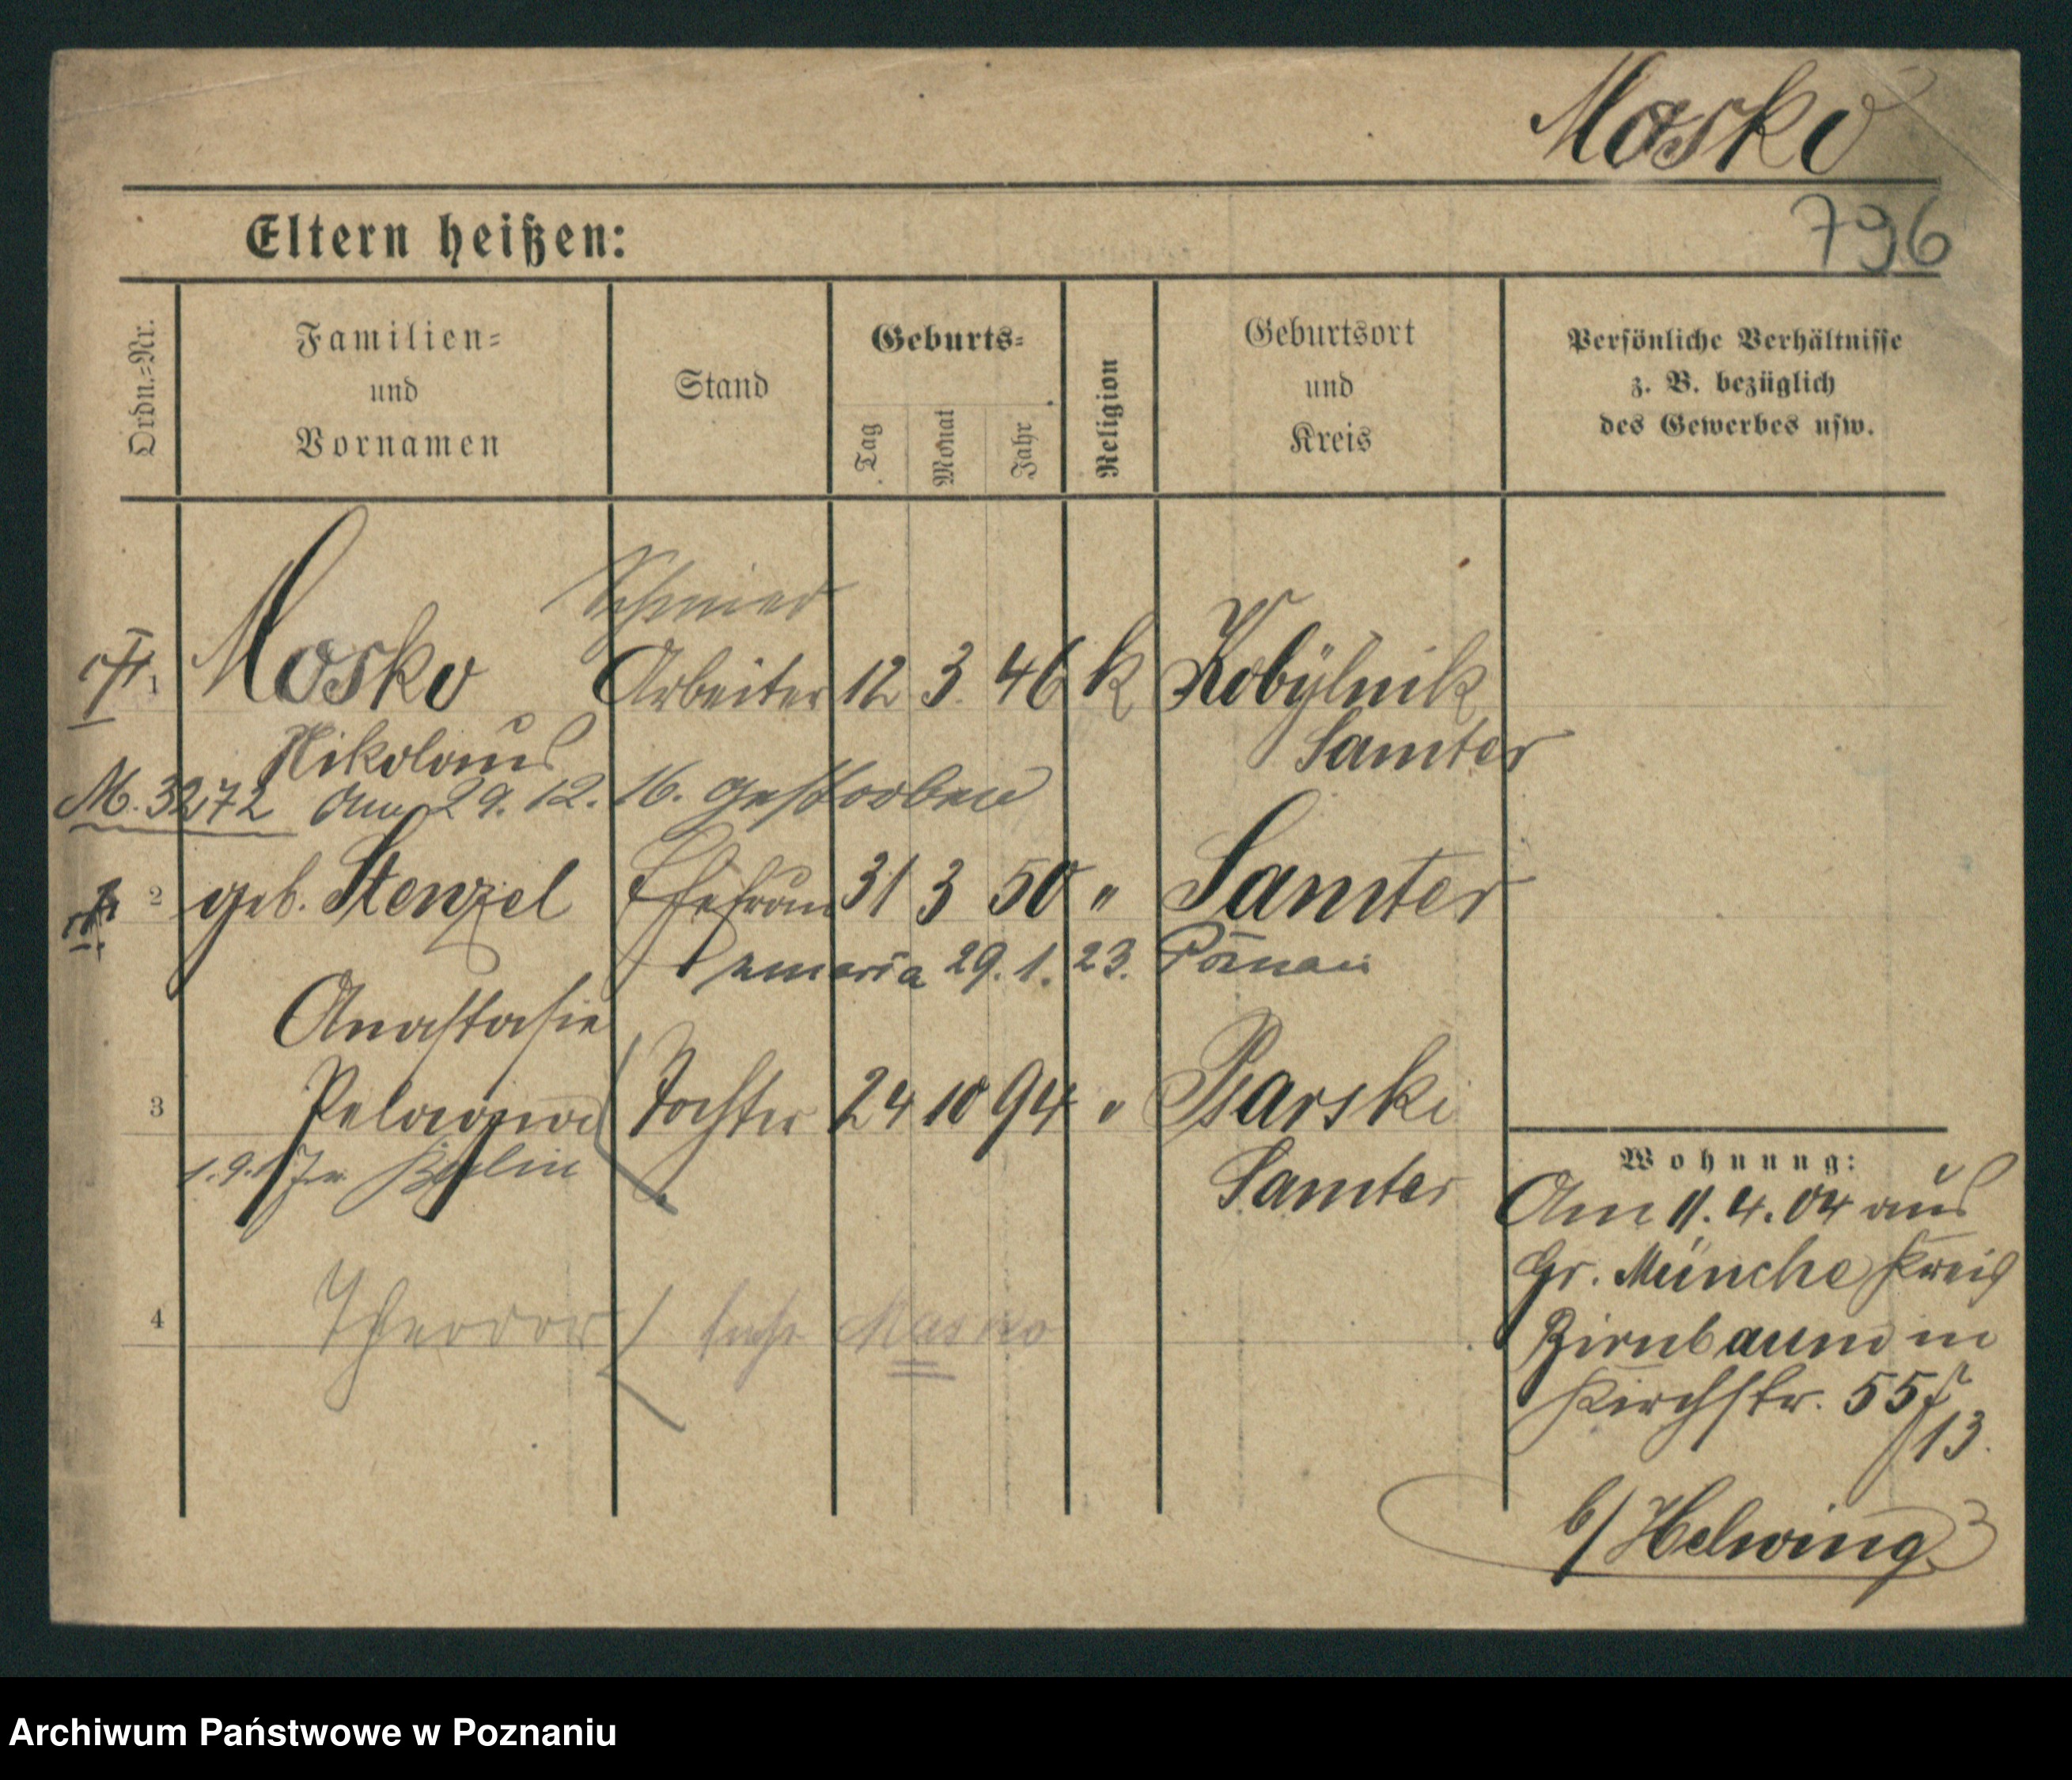 Mosko
796
Eltern heißen:
Ordn.=Nr.
Familien= und Vornamen
Stand
Geburts=
Tag
Monat
Jahr
Religion
Geburtsort und Kreis
Persönliche Verhältnisse z. B. bezüglich des Gewerbes usw.
Schmied
1 Mosko Arbeiter 12 3. 46 k Kobylnik
Nikolaus Samter
M. 3272 Am 29. 12. 16. gestorben
2 geb. Stenzel Ehefrau 31 3 50 " Samter
umarła 29. 1. 23. Poznań
Anastasie
3 Pelagia Tochter 24 10 94 " Psarski
1.9.17 n. Berlin Samter
4 Theodor siehe Masko
Wohnung:
Am 11. 4. 04 aus
Gr. Münche Kreis
Birnbaum in
Kirchstr. 55
13.
b/ Helwing
Archiwum Państwowe w Poznaniu